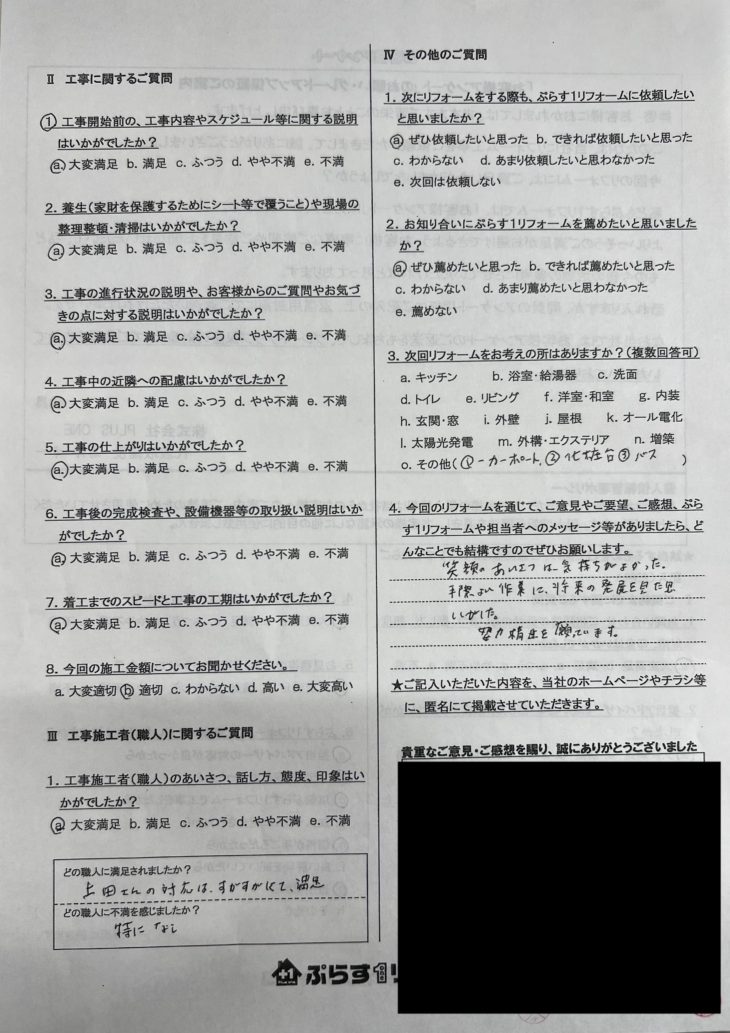 Ⅱ 工事に関するご質問
1．工事開始前の、工事内容やスケジュール等に関する説明
はいかがでしたか？
a. 大変満足 b. 満足 c. ふつう d. やや不満 e. 不満
2．養生（家財を保護するためにシート等で覆うこと）や現場の
整理整頓・清掃はいかがでしたか？
a. 大変満足 b. 満足 c. ふつう d. やや不満 e. 不満
3．工事の進行状況の説明や、お客様からのご質問やお気づ
きの点に対する説明はいかがでしたか？
a. 大変満足 b. 満足 c. ふつう d. やや不満 e. 不満
4．工事中の近隣への配慮はいかがでしたか？
a. 大変満足 b. 満足 c. ふつう d. やや不満 e. 不満
5．工事の仕上がりはいかがでしたか？
a. 大変満足 b. 満足 c. ふつう d. やや不満 e. 不満
6．工事後の完成検査や、設備機器等の取り扱い説明はいか
がでしたか？
a. 大変満足 b. 満足 c. ふつう d. やや不満 e. 不満
7．着工までのスピードと工事の工期はいかがでしたか？
a. 大変満足 b. 満足 c. ふつう d. やや不満 e. 不満
8．今回の施工金額についてお聞かせください。
a. 大変適切 b. 適切 c. わからない d. 高い e. 大変高い
Ⅲ 工事施工者（職人）に関するご質問
1．工事施工者（職人）のあいさつ、話し方、態度、印象はい
かがでしたか？
a. 大変満足 b. 満足 c. ふつう d. やや不満 e. 不満
どの職人に満足されましたか？
上田さんの対応は、すがすがしくて、満足
どの職人に不満を感じましたか？
特になし
Ⅳ その他のご質問
1．次にリフォームをする際も、ぷらす1リフォームに依頼したい
と思いましたか？
a. ぜひ依頼したいと思った b. できれば依頼したいと思った
c. わからない d. あまり依頼したいと思わなかった
e. 次回は依頼しない
2．お知り合いにぷらす1リフォームを薦めたいと思いました
か？
a. ぜひ薦めたいと思った b. できれば薦めたいと思った
c. わからない d. あまり薦めたいと思わなかった
e. 薦めない
3．次回リフォームをお考えの所はありますか？（複数回答可）
a. キッチン b. 浴室・給湯器 c. 洗面
d. トイレ e. リビング f. 洋室・和室 g. 内装
h. 玄関・窓 i. 外壁 j. 屋根 k. オール電化
l. 太陽光発電 m. 外構・エクステリア n. 増築
o. その他（①カーポート、②化粧台③バス）
4．今回のリフォームを通じて、ご意見やご要望、ご感想、ぷら
す1リフォームや担当者へのメッセージ等がありましたら、ど
んなことでも結構ですのでぜひお願いします。
笑顔のあいさつは、気持ちがよかった。
手際よい作業に、将来の発展を見た思
いがした。
努力精進を願っています。
★ご記入いただいた内容を、当社のホームページやチラシ等
に、匿名にて掲載させていただきます。
貴重なご意見・ご感想を賜り、誠にありがとうございました
+1 ぷらす1リ